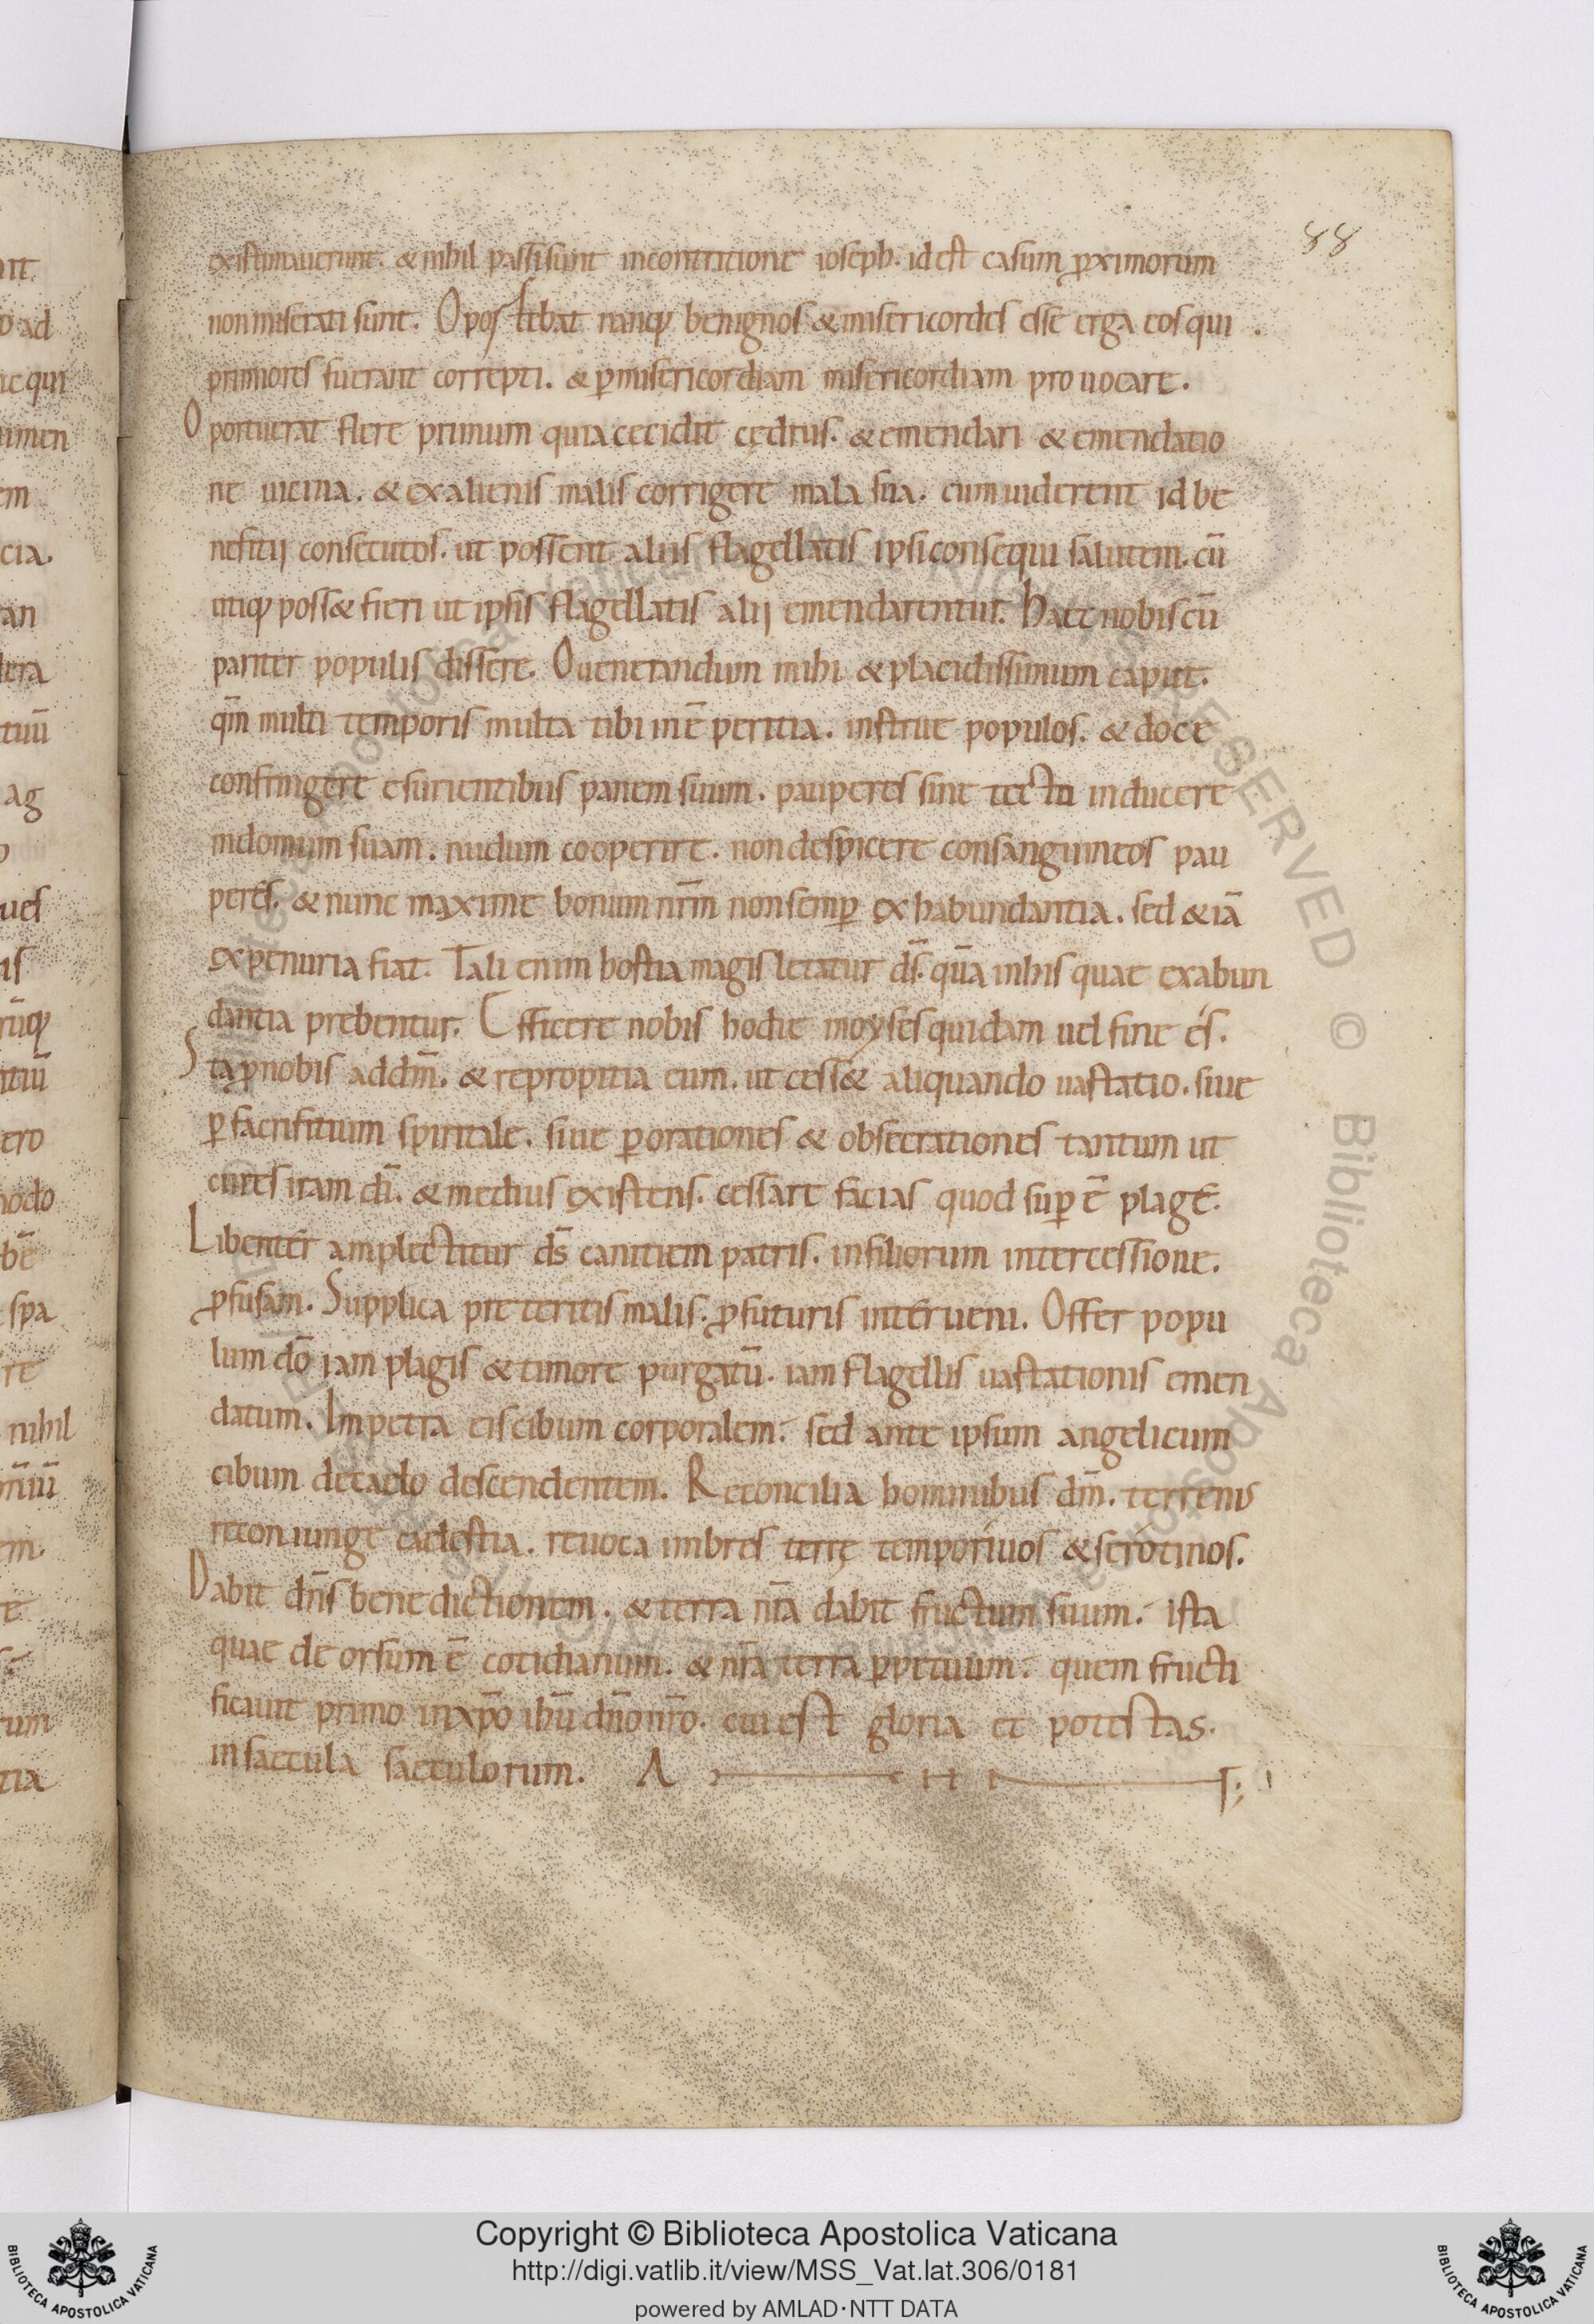 88
existimauerunt. & nihil passi sunt incontritione ioseph. id est casum ꝓximorum
non miserati sunt. Oportebat nanq; benignos & misericordes esse erga eos qui
primores fuerant correpti. & ꝑmisericordiam misericordiam prouocare.
Oportuerat flere primum quia cecidit cędrus. & emendari & emendatio
ne uicina. & exalienis malis corrigere mala sua. cum uiderent id be
nefitij consecutos. ut possent aliis flagellatis ipsi consequi salutem. cū
utiq; poss& fieri ut ipsis flagellatis alij emendarentur. Haec nobis cū
pariter populis dissere. O uenerandum mihi & placidissimum caput.
qm̄ multi temporis multa tibi inē peritia. instrue populos. & doce
confringere esurientibus panem suum. pauperes sine tecto inducere
indomum suam. nudum cooperire. non despicere consanguineos pau
peres. & nunc maxime bonum nr̄m non semꝑ ex habundantia. sed & iā
ex penuria fiat. Tali enim hostia magis letatur ds̄. quā inhis quae exabun
dantia prebentur. Efficere nobis hodie moyses quidam uel fine és.
Sta ꝓnobis ad dm̄. & repropitia eum. ut cess& aliquando uastatio. siue
ꝑ sacrifitium spiritale. siue ꝑ orationes & obsecrationes tantum ut
cures iram dī. & medius existens. cessare facias quod suꝑ ē plagę.
Libenter amplectitur ds̄ canitiem patris. infiliorum intercessione.
ꝓfusam. Supplica preteritis malis. ꝓfuturis interueni. Offer popu
lum dō iam plagis & timore purgatū. iam flagellis uastationis emen
datum. Impetra eis cibum corporalem. sed ante ipsum angelicum
cibum decaelo descendentem. Reconcilia hominibus dm̄. terrenis
reconiunge caelestia. reuoca imbres terrę temporíuos & serótinos.
Dabit dn̄s benedictionem. & terra nr̄a dabit fructum suum. ista
quae deorsum ē cotidianum. & nr̄a terra ꝑpetuum. quem fructi
ficauit primo inxp̄o ihū dn̄o nr̄o. cui est gloria et potestas.
insaecula saeculorum. A
Copyright © Biblioteca Apostolica Vaticana
http://digi.vatlib.it/view/MSS_Vat.lat.306/0181
powered by AMLAD·NTT DATA
BIBLIOTECA APOSTOLICA VATICANA
BIBLIOTECA APOSTOLICA VATICANA